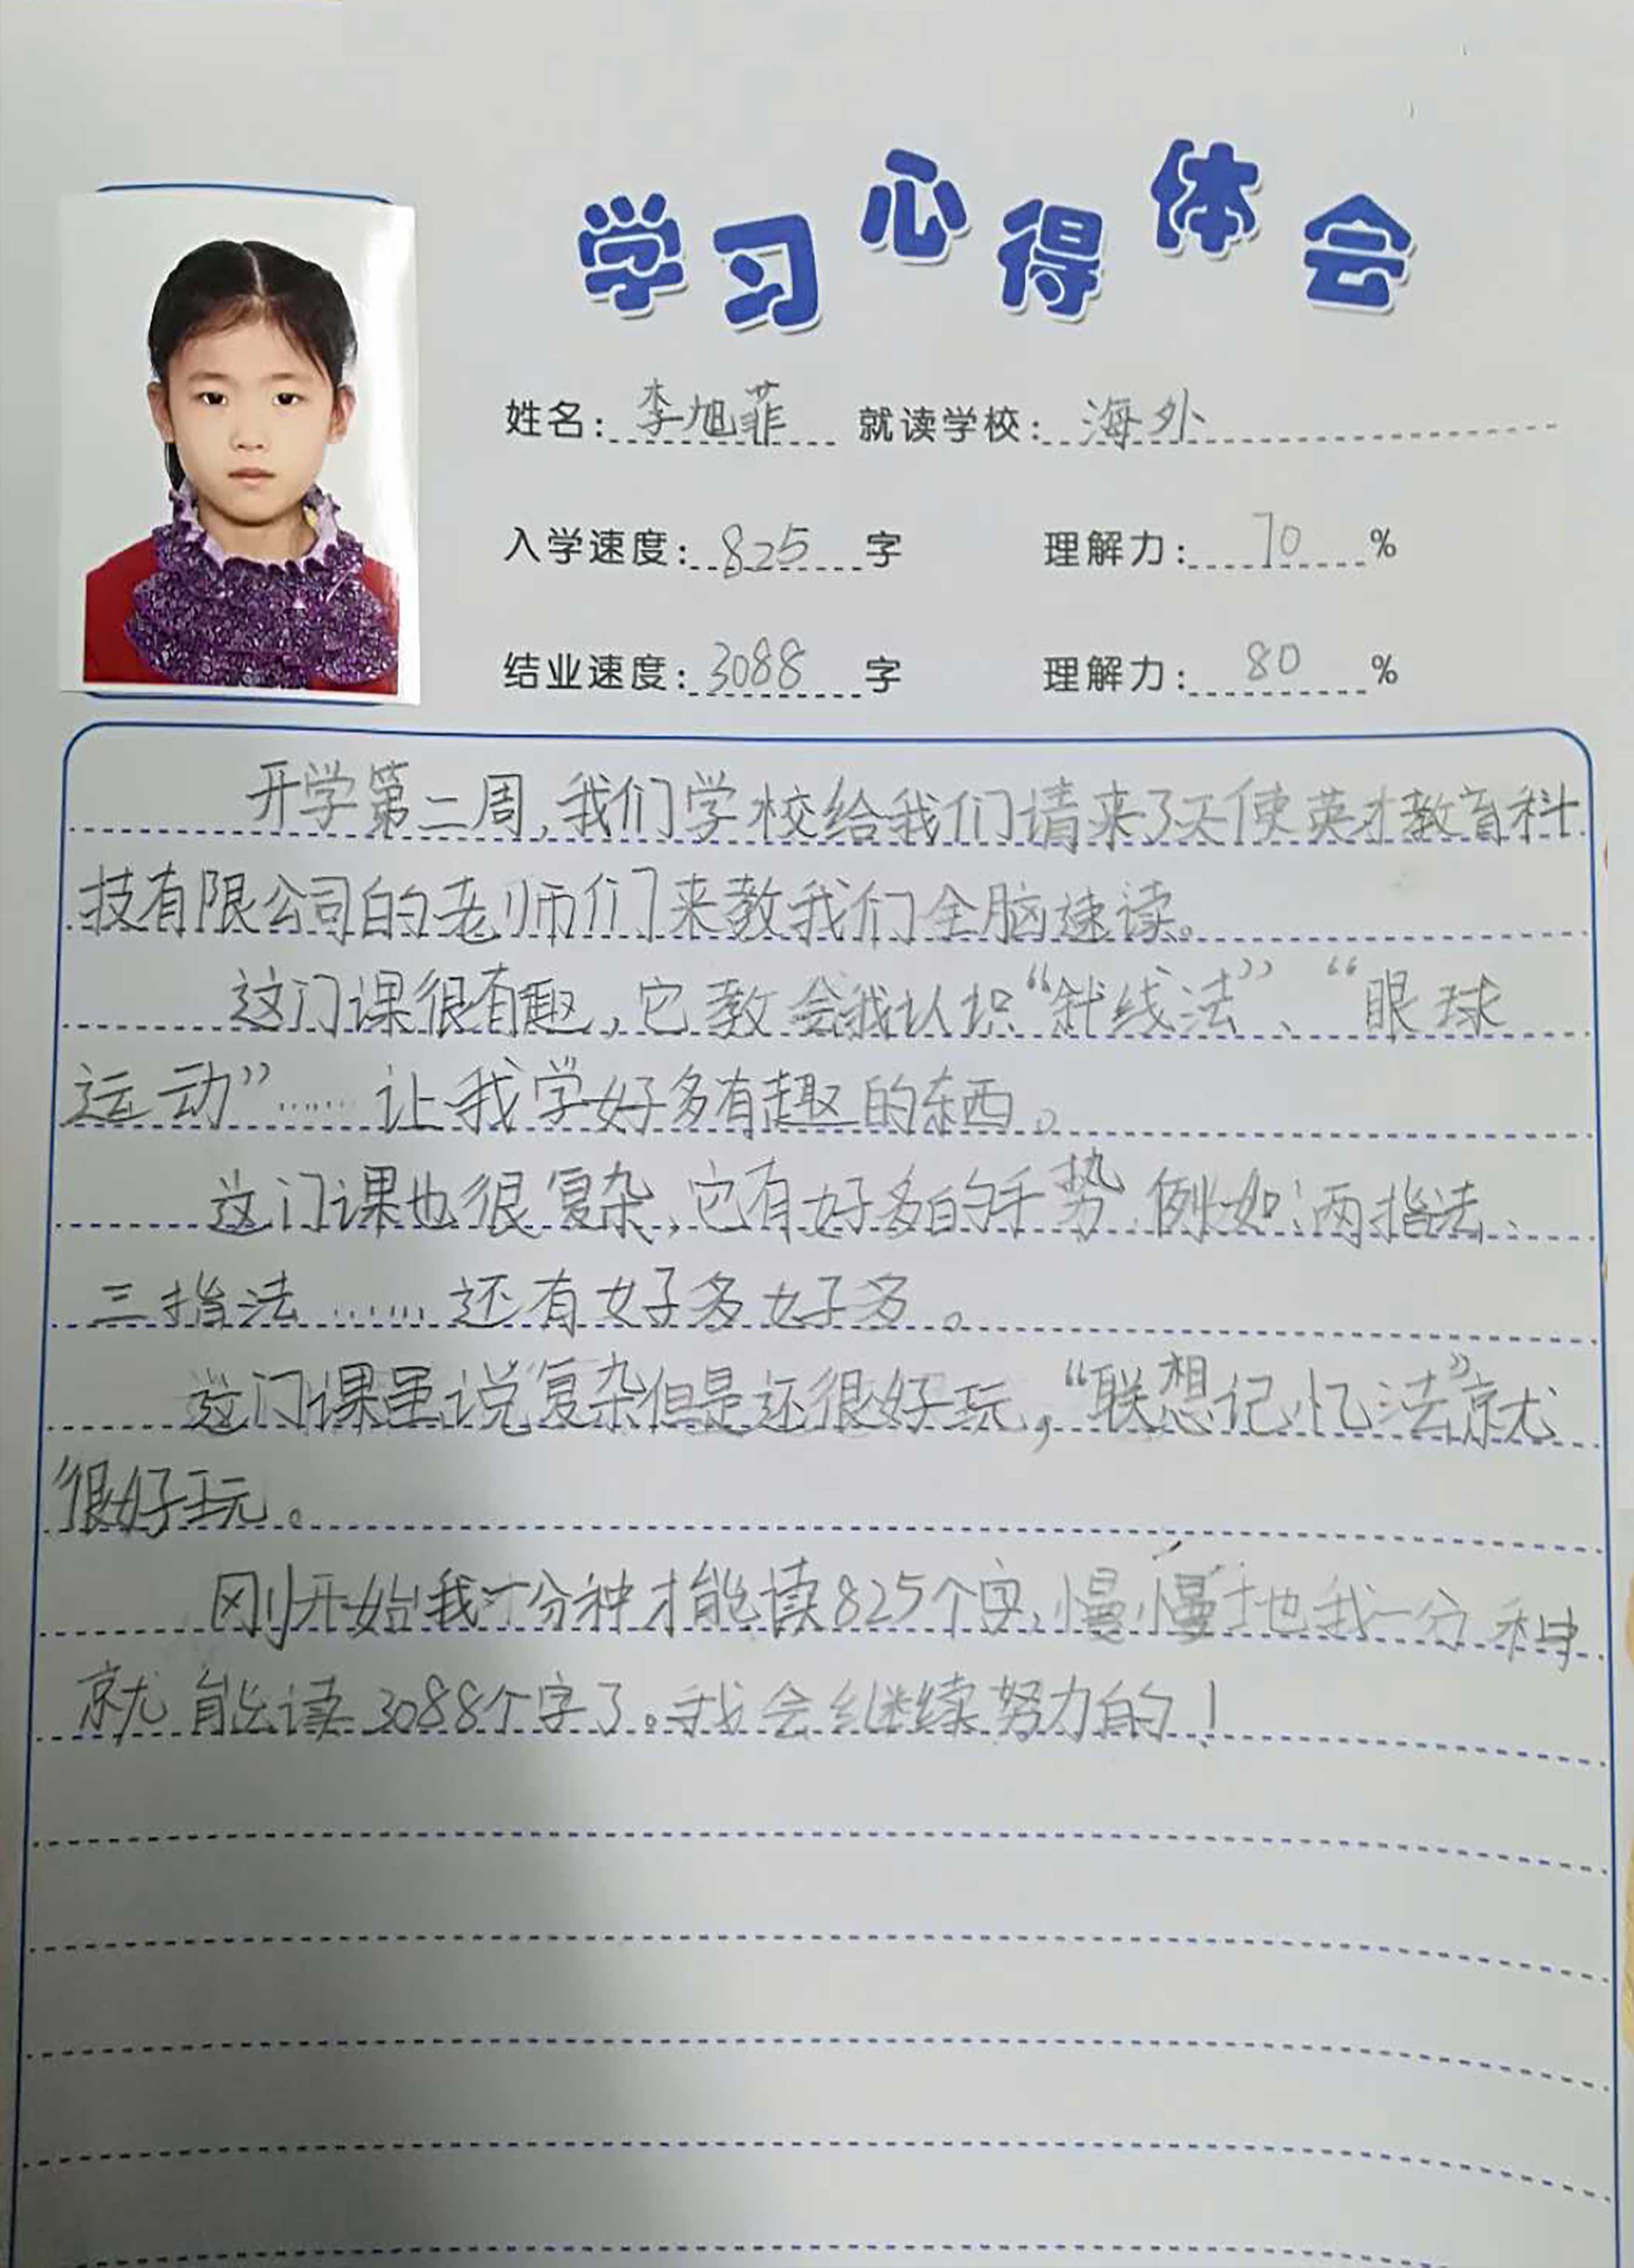 学习心得体会
姓名：李旭菲 就读学校：海外
入学速度：825字 理解力：70%
结业速度：3088字 理解力：80%
开学第二周，我们学校给我们请来了天使英才教育科
技有限公司的老师们来教我们全脑速读。
这门课很有趣，它教会我认识“针线法”、“眼球
运动”……让我学好多有趣的东西。
这门课也很复杂，它有好多的手势 例如：两指法、
三指法……还有好多好多。
这门课虽说复杂但是还很好玩，“联想记忆法”就
很好玩。
刚开始我一分种才能读825个字，慢慢地我一分种
就能读3088个字了。我会继续努力的！